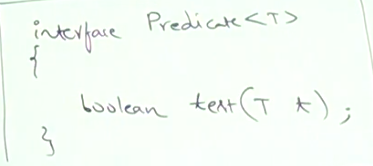 interface Predicate<T>
{
boolean test(T t);
}